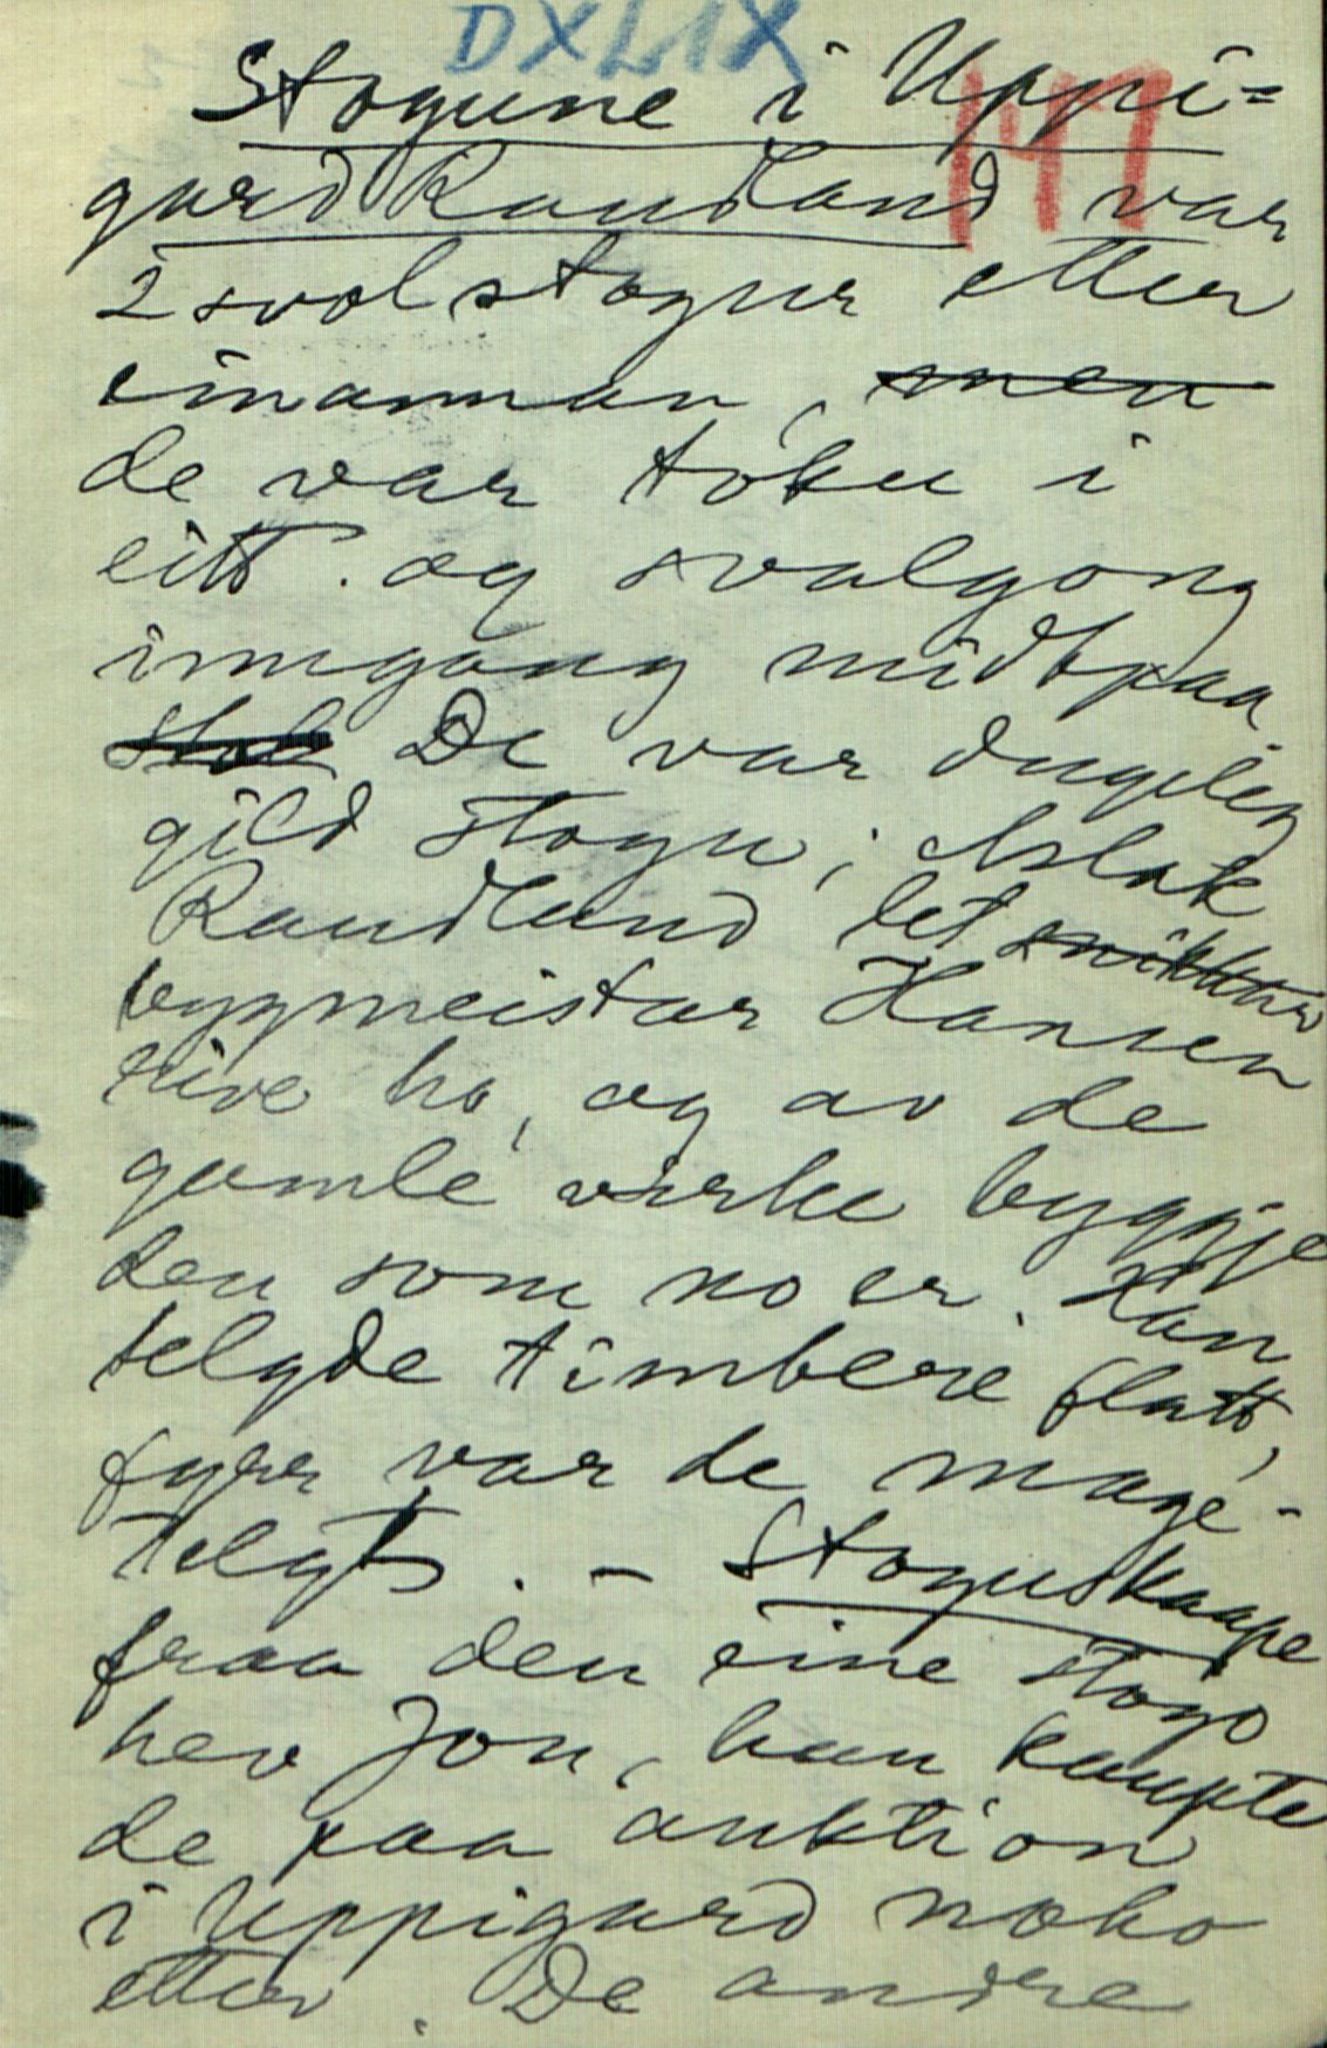 DXLIX
147
Stogune i Uppi=
gard Raudland var
2 svolstogur etter
einannan, men
de var tóku i
eitt. og svalgong
inngong midtpaa.
De var dugeleg
gild stogu; Aslak
Raudland let snikkar
byggmeistar Hansen
rive ho, og av de
gamle virke byggje
den som no er. Han
telgde timbere flatt,
fyrr var de mage-
telgt. – Stoguskaape
fraa den eine stogo
hev Jon, han kaupte
de paa auktion
i Uppigard noko
etter. De andre